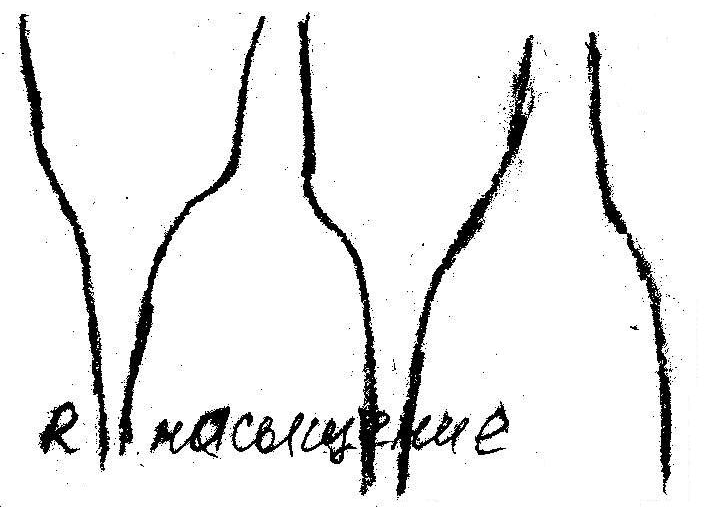 R насыщение